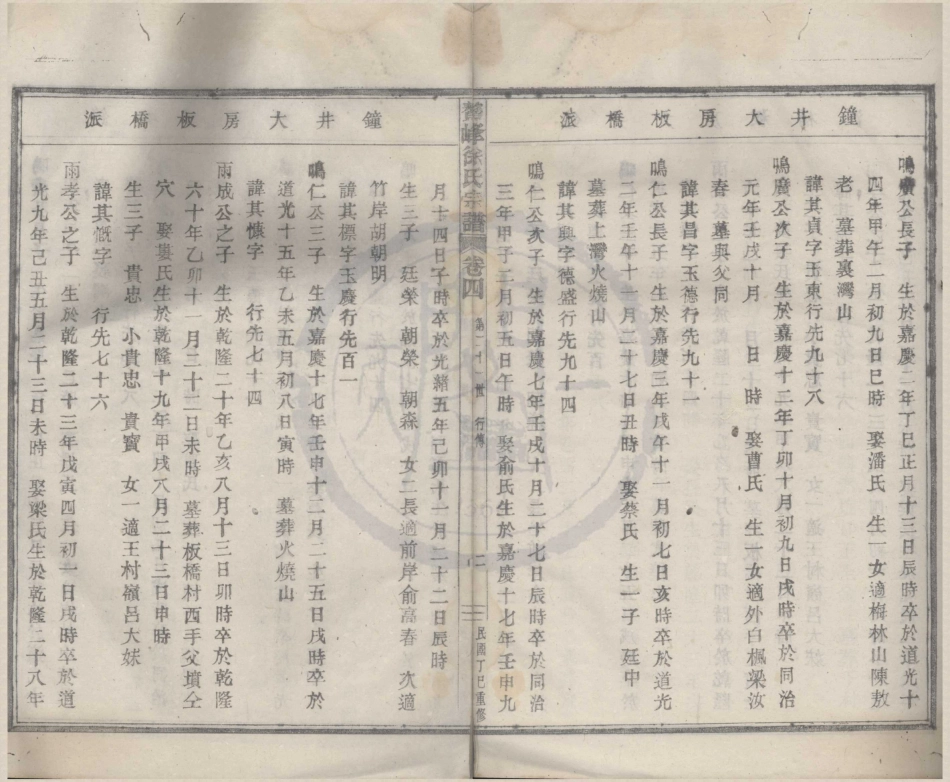 鐘井大房板橋派
鳴廣公長子　生於嘉慶二年丁巳正月十三日辰時卒於道光十
四年甲午二月初九日巳時　娶潘氏　生一女適梅林山陳敖
老　墓葬裏灣山
諱其貞字玉東行先九十八
鳴廣公次子　生於嘉慶十二年丁卯十月初九日戌時卒於同治
元年壬戌十月　日　時　娶曹氏　生一女適外白楓梁汝
春　墓與父同
諱其昌字玉德行先九十一
鳴仁公長子　生於嘉慶三年戊午十一月初七日亥時卒於道光
二年壬午十一月二十七日丑時　娶蔡氏　生一子　廷中
墓葬上灣火燒山
諱其興字德盛行先九十四
鳴仁公次子　生於嘉慶七年壬戌十月二十七日辰時卒於同治
三年甲子二月初五日午時　娶俞氏生於嘉慶十七年壬申九
徐氏宗譜　卷四　行傳　二　民國丁巳重修
鐘井大房板橋派
月十四日子時卒於光緒五年己卯十一月二十二日辰時
生三子　廷榮　朝榮　朝森　女二長適前岸俞高春　次適
竹岸胡朝明
諱其標字玉慶行先百一
鳴仁公三子　生於嘉慶十七年壬申十二月二十五日戌時卒於
道光十五年乙未五月初八日寅時　墓葬火燒山
諱其懷字　行先七十四
雨成公之子　生於乾隆二十年乙亥八月十三日卯時卒於乾隆
六十年乙卯十一月二十二日未時　墓葬板橋村西手父墳仝
穴　娶婁氏生於乾隆十九年甲戌八月二十三日申時
生三子　貴忠　小貴忠　貴寳　女一適王村嶺呂大妹
諱其慨字　行先七十六
雨孝公之子　生於乾隆二十三年戊寅四月初一日戌時卒於道
光九年己丑五月二十三日未時　娶梁氏生於乾隆二十八年